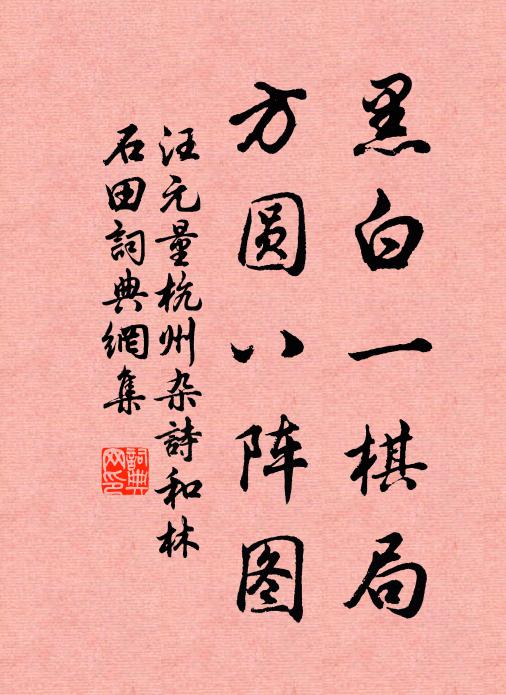 黑白一棋局
方圆八阵图
汪元量杭州杂詩和林
石田詞典網集
詞典网印